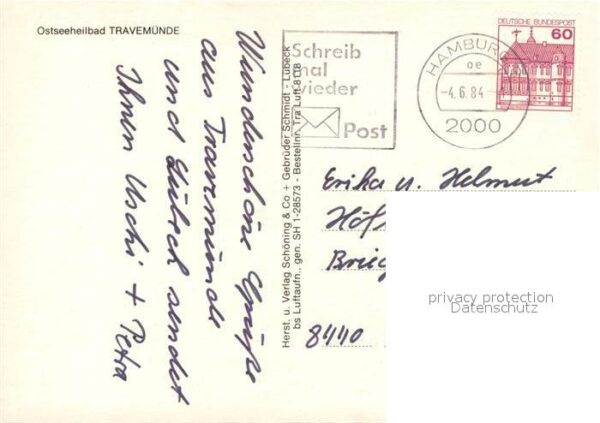 Ostseeheilbad TRAVEMÜNDE
Wunderschöne Grüße
aus Travemünde
und Lübeck sendet
Ihnen Uschi + Petra
Herst. u. Verlag Schöning & Co + Gebrüder Schmidt - Lübeck
bs Luftaufn., gen. SH 1-28573 - Bestellnr. Tra Luft 8118
Schreib
mal
wieder
Post
HAMBURG
oe
-4.6.84-
2000
DEUTSCHE BUNDESPOST
60
Erika u. Helmut
Höf
Brieg
8440
privacy protection
Datenschutz